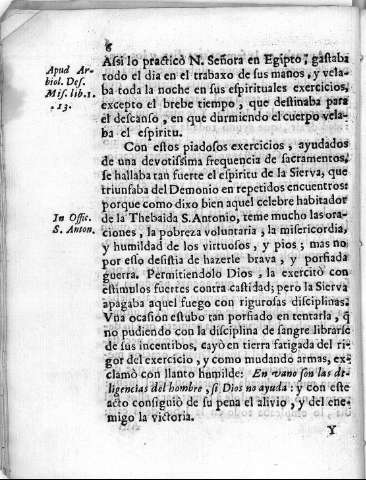 6
Assi lo practicò N. Señora en Egipto, gastaba
todo el dia en el trabaxo de sus manos, y vela-
ba toda la noche en sus espirituales exercicios,
excepto el brebe tiempo, que destinaba para
el descanso, en que durmiendo el cuerpo vela-
ba el espiritu.
Con estos piadosos exercicios, ayudados
de una devotissima frequencia de sacramentos,
se hallaba tan fuerte el espiritu de la Sierva, que
triunfaba del Demonio en repetidos encuentros:
porque como dixo bien aquel celebre habitador
de la Thebaida S. Antonio, teme mucho las ora-
ciones, la pobreza voluntaria, la misericordia,
y humildad de los virtuosos, y pios; mas no
por esso desistia de hazerle brava, y porfiada
guerra. Permitiendolo Dios, la exercitò con
estimulos fuertes contra castidad; pero la Sierva
apagaba aquel fuego con rigurosas disciplinas.
Vna ocasion estubo tan porfiado en tentarla, q̃
no pudiendo con la disciplina de sangre librarse
de sus incentibos, cayò en tierra fatigada del ri-
gor del exercicio, y como mudando armas, ex-
clamò con llanto humilde: En vano son las di-
ligencias del hombre, si Dios no ayuda: y con este
acto consiguiò de su pena el alivio, y del ene-
migo la victoria.
Y
Apud Ar-
biol. Des.
Mis. lib. 1.
. 13.
In Offic.
S. Anton.